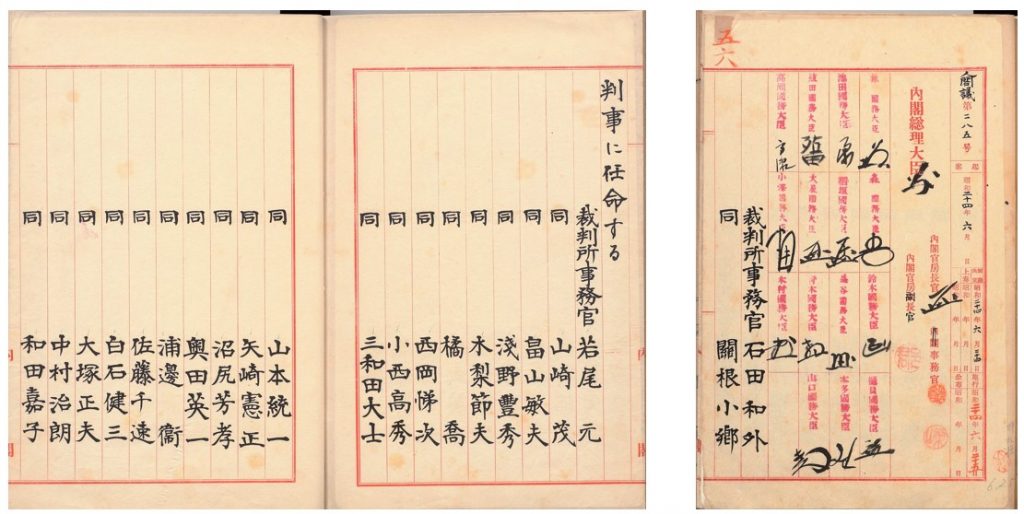 五六
閣議第二八五号
昭和二十四年 六月 日
内閣総理大臣
内閣官房長官
内閣官房副長官
事務官
林 國務大臣
森 國務大臣
鈴木國務大臣
樋貝國務大臣
池田國務大臣
稻垣國務大臣
益谷國務大臣
本多國務大臣
殖田國務大臣
大屋國務大臣
青木國務大臣
山口國務大臣
高瀬國務大臣
小澤國務大臣
木村國務大臣
裁判所事務官 石田和外
同 關根小郷
判事に任命する
裁判所事務官 若尾元
同 山崎茂
同 畠山敏夫
同 淺野豊秀
同 木梨節夫
同 橘喬
同 西岡悌次
同 小西高秀
同 三和田大士
同 山本統一
同 矢崎憲正
同 沼尻芳孝
同 奥田英一
同 浦邊衞
同 佐藤千速
同 白石健三
同 大塚正夫
同 中村治朗
同 和田嘉子